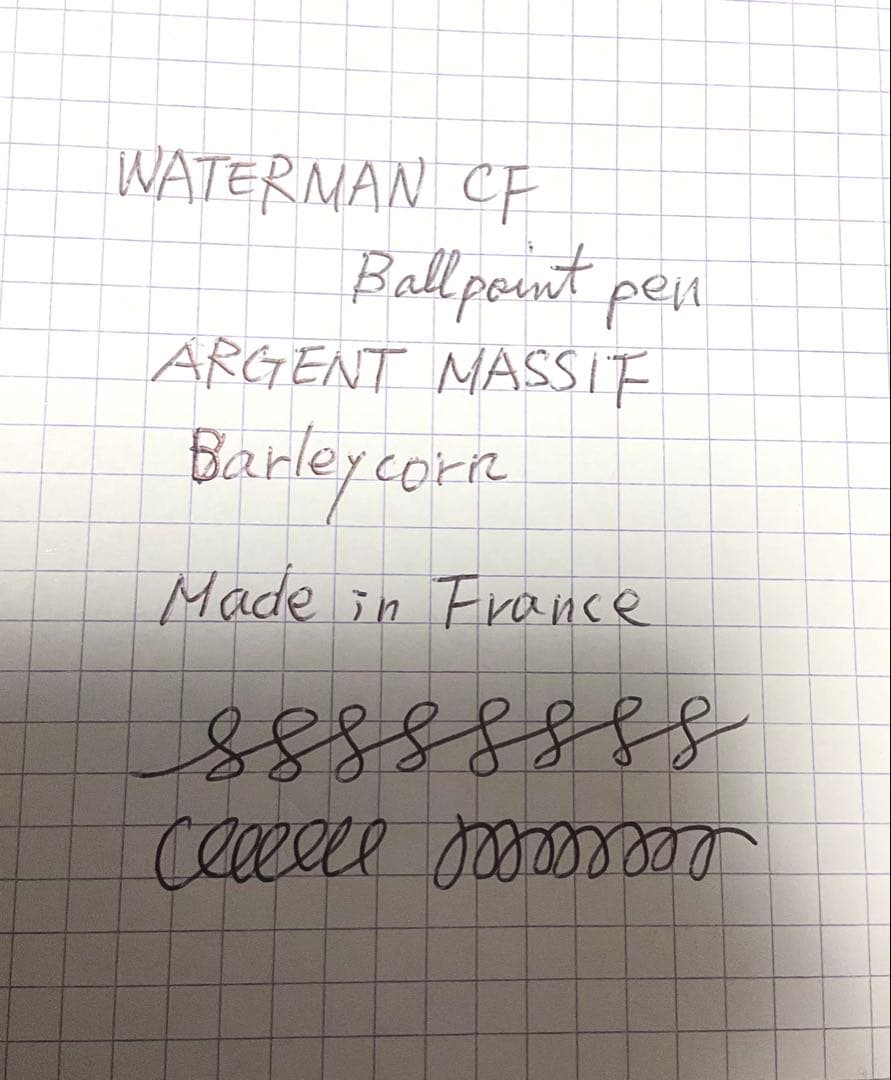 WATERMAN CF
Ballpoint pen
ARGENT MASSIF
Barleycorn
Made in France